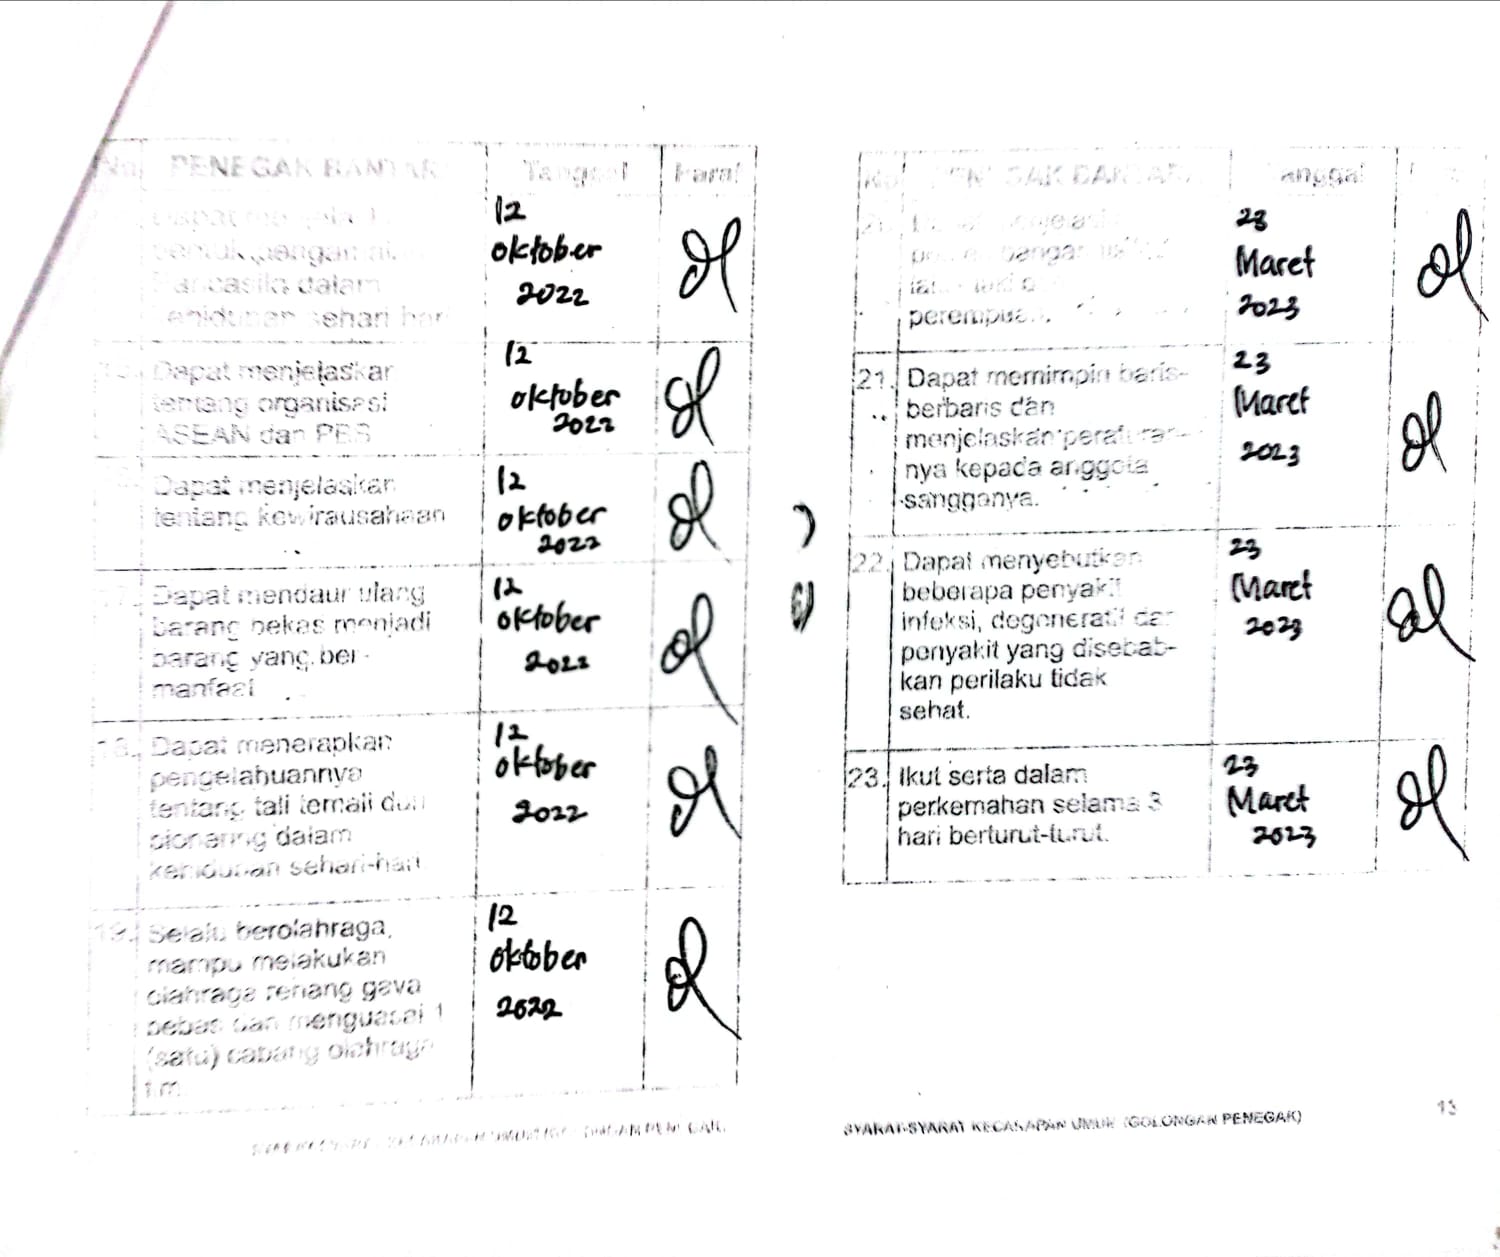 No PENEGAK BANTARA Tanggal Paraf
12
oktober
2022
Pancasila dalam
kehidupan sehari hari
Dapat menjelaskan
tentang organisasi
ASEAN dan PBB
12
oktober
2022
Dapat menjelaskan
tentang kewirausahaan
12
oktober
2022
17. Dapat mendaur ulang
barang bekas menjadi
barang yang ber-
manfaat
12
oktober
2022
18. Dapat menerapkan
pengetahuannya
tentang tali temali dan
pionering dalam
kehidupan sehari-hari
12
oktober
2022
19. Selalu berolahraga,
mampu melakukan
olahraga renang gaya
bebas dan menguasai 1
(satu) cabang olahraga
12
oktober
2022
No PENEGAK BANTARA Tanggal
perempuan.
23
Maret
2023
21. Dapat memimpin baris-
berbaris dan
menjelaskan peraturan-
nya kepada anggota
sangganya.
23
Maret
2023
22. Dapat menyebutkan
beberapa penyakit
infeksi, degeneratif dan
penyakit yang disebab-
kan perilaku tidak
sehat.
23
Maret
2023
23. Ikut serta dalam
perkemahan selama 3
hari berturut-turut.
23
Maret
2023
SYARAT-SYARAT KECAKAPAN UMUM (GOLONGAN PENEGAK)
13